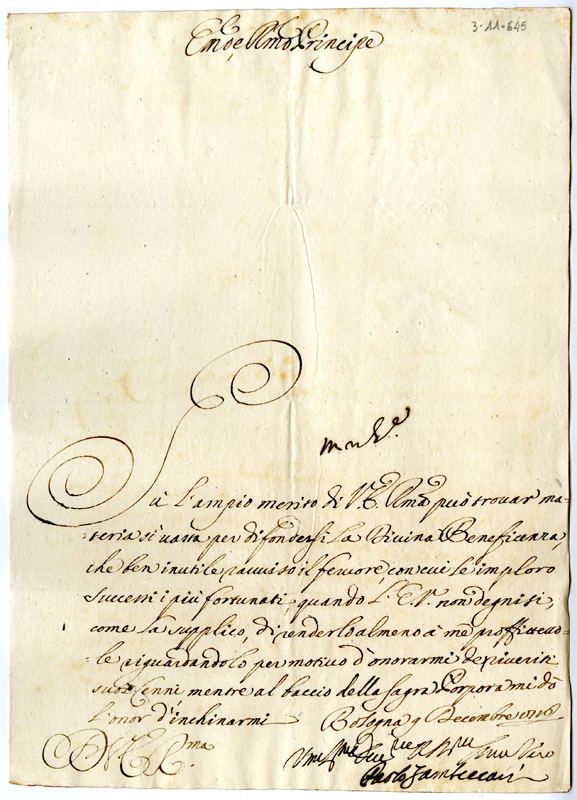 3-11-645
Em.o e R.mo Principe
Sù l'ampio merito di V. E. R.ma può trovar ma=
=teria sì vasta per difondersi la Divina Beneficenza,
che ben inutile ravviso il fervore, con cui le imploro
successi i più fortunati, quando l'E. V. non degnisi,
come la supplico, di renderlo almeno à me proffittevo=
=le riguardandolo per motivo d'onorarmi de riveriti
suoi cenni, mentre al baccio della sagra Porpora mi dò
l'onor d'inchinarmi Bologna 9 Decembre
D V. E. R.ma
Paolo Zambeccari